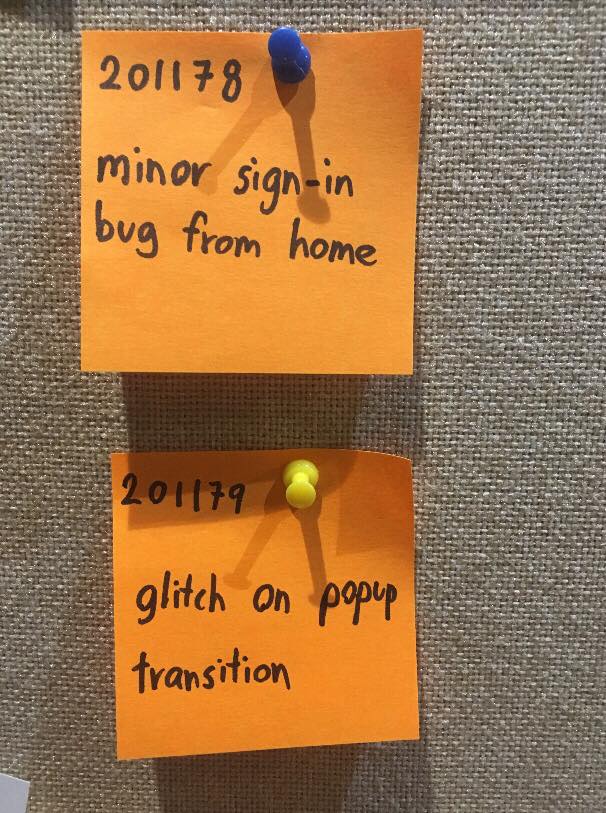 201178
minor sign-in
bug from home
201179
glitch on popup
transition